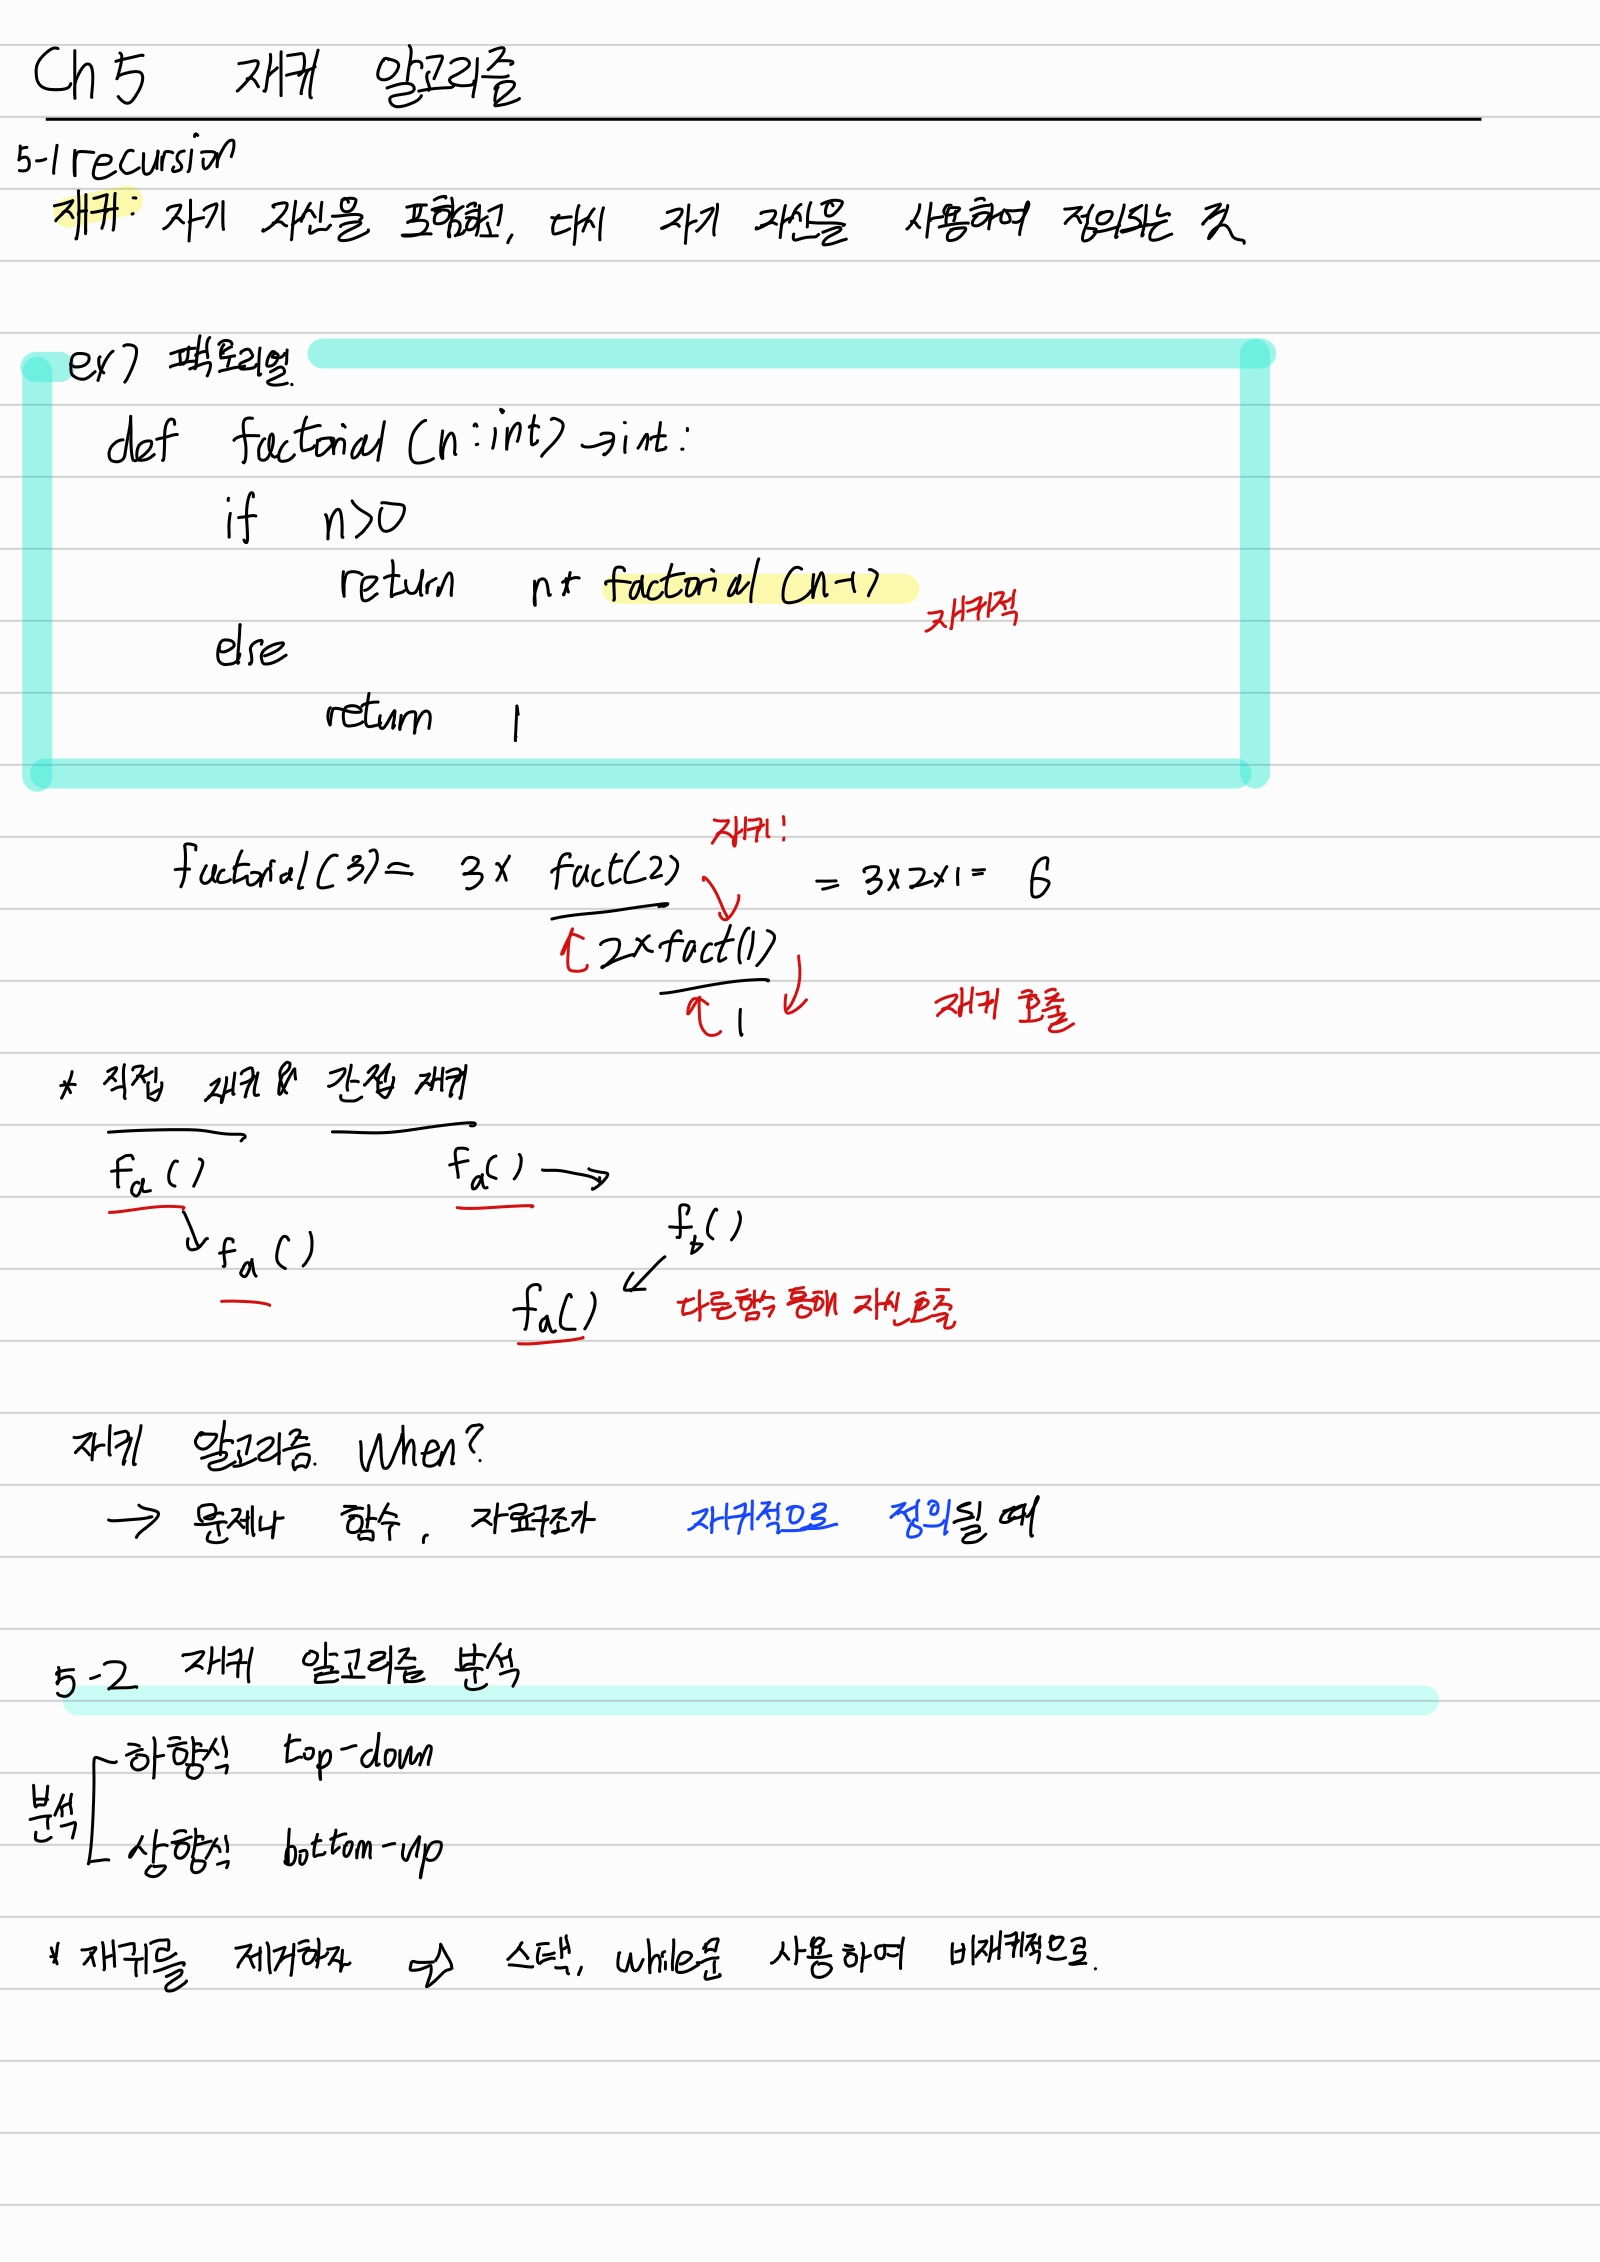 Ch 5 재귀 알고리즘
5-1 recursion
재귀: 자기 자신을 포함하고, 다시 자기 자신을 사용하여 정의되는 것
ex) 팩토리얼.
def factorial (n:int) →int:
if n>0
return n* factorial (n-1)
재귀적
else
return 1
재귀!
factorial(3)= 3 x fact(2) = 3x2x1= 6
2x fact(1)
1
재귀 호출
* 직접 재귀 & 간접 재귀
fa () fa() →
fb()
fa ()
fa() 다른함수 통해 자신호출
재귀 알고리즘. When?
→ 문제나 함수, 자료구조가 재귀적으로 정의될 때
5-2 재귀 알고리즘 분석
하향식 top-down
분석
상향식 bottom-up
* 재귀를 제거하자 ⇨ 스택, while문 사용하여 비재귀적으로.